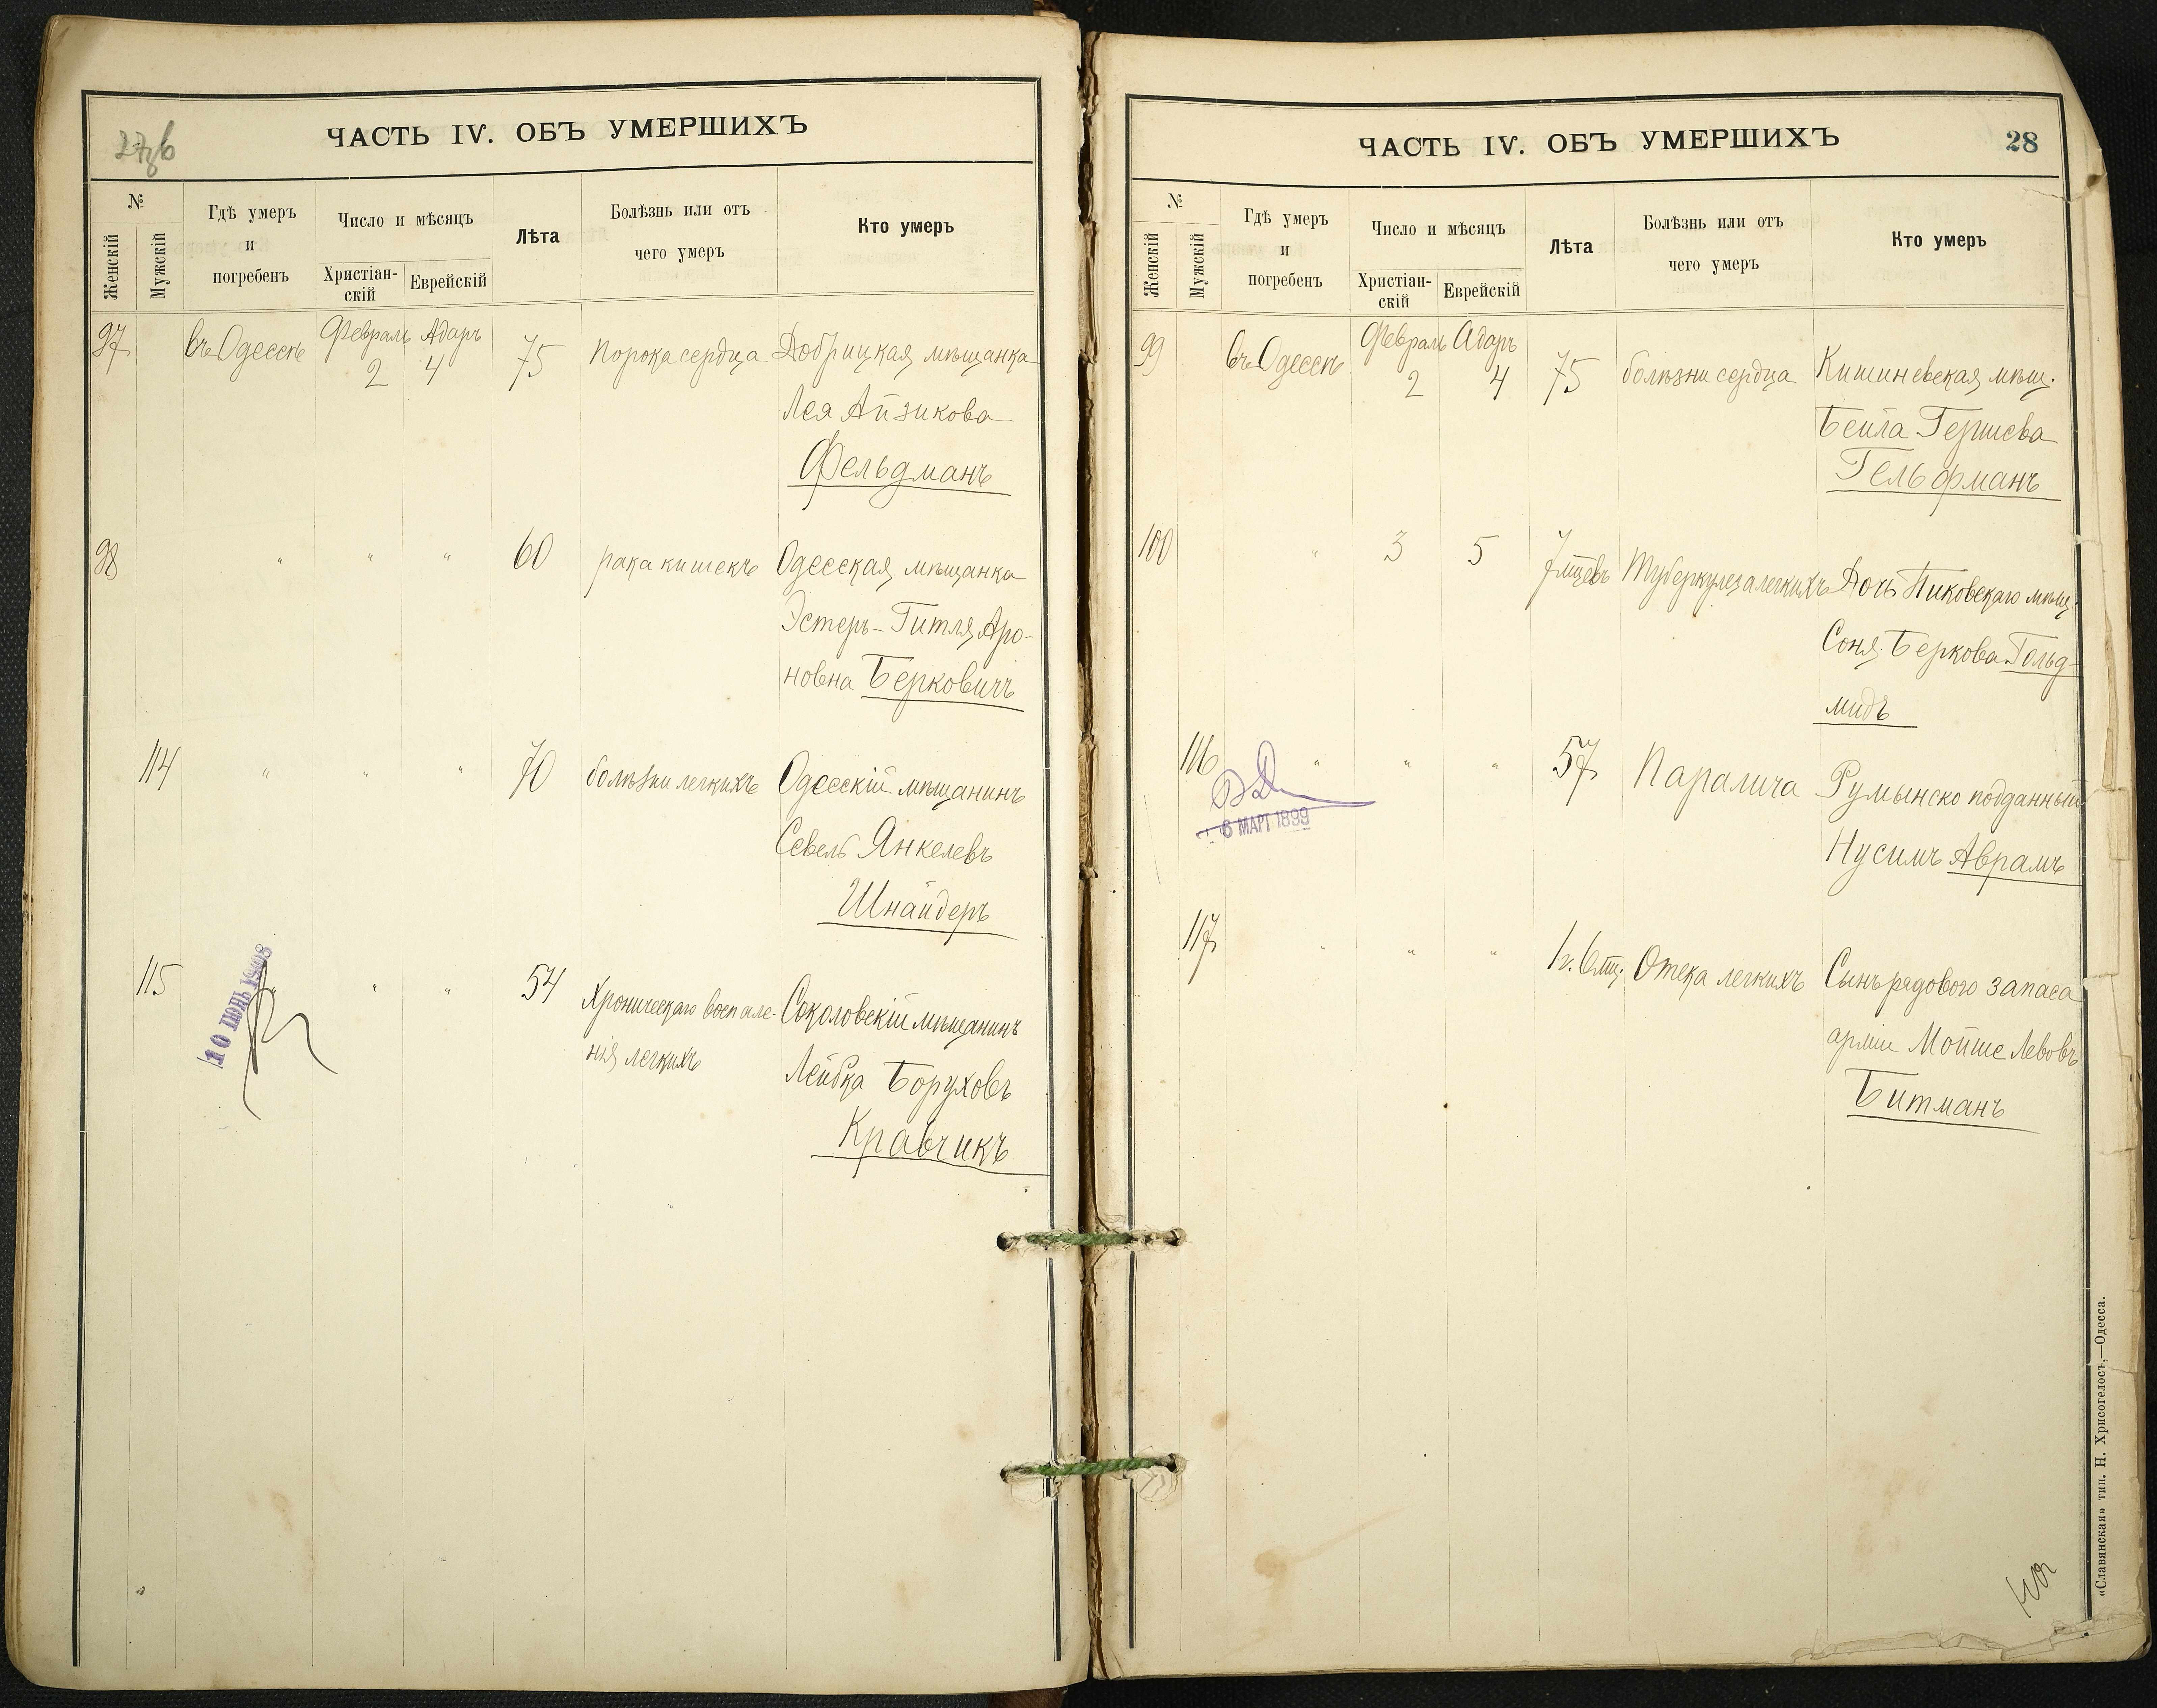 27об
ЧАСТЬ IV. ОБЪ УМЕРШИХЪ
№
Женскій
Мужскій
Гдѣ умеръ
и
погребенъ
Число и мѣсяцъ
Христіан-
скій
Еврейскій
Лѣта
Болѣзнь или отъ
чего умеръ
Кто умеръ
97 въ Одессѣ Февраль 2 Адаръ 4 75 порока сердца Добрицкая мѣщанка
Лея Айзикова
Фельдманъ
98 " " " 60 рака кишекъ Одесская мѣщанка
Эстеръ-Гитля Аро-
новна Берковичъ
114 " " " 70 болѣзни легкихъ Одесскій мѣщанинъ
Севель Янкелевъ
Шнайдеръ
115 " " " 54 Хроническаго воспале- Соколовскій мѣщанинъ
нія легкихъ Лейбка Боруховъ
Кравчикъ
10 ІЮНЬ 1908
ЧАСТЬ IV. ОБЪ УМЕРШИХЪ
28
№
Женскій
Мужскій
Гдѣ умеръ
и
погребенъ
Число и мѣсяцъ
Христіан-
скій
Еврейскій
Лѣта
Болѣзнь или отъ
чего умеръ
Кто умеръ
99 въ Одессѣ Февраль 2 Адаръ 4 75 болѣзни сердца Кишиневская мѣщ.
Бейла Гершева
Гельфманъ
100 " 3 5 7 мцевъ Туберкулеза легкихъ Дочь Пиковскаго мѣщ.
Соня Беркова Гольд-
мидъ
116 " " " 57 Паралича Румынско подданный
Нусимъ Аврамъ
6 МАРТ 1899
117 " " " 1 г. 6 мц. Отека легкихъ Сынъ рядового запаса
арміи Мойше Левовъ
Битманъ
«Славянская» тип. Н. Хрисогелосъ,—Одесса.